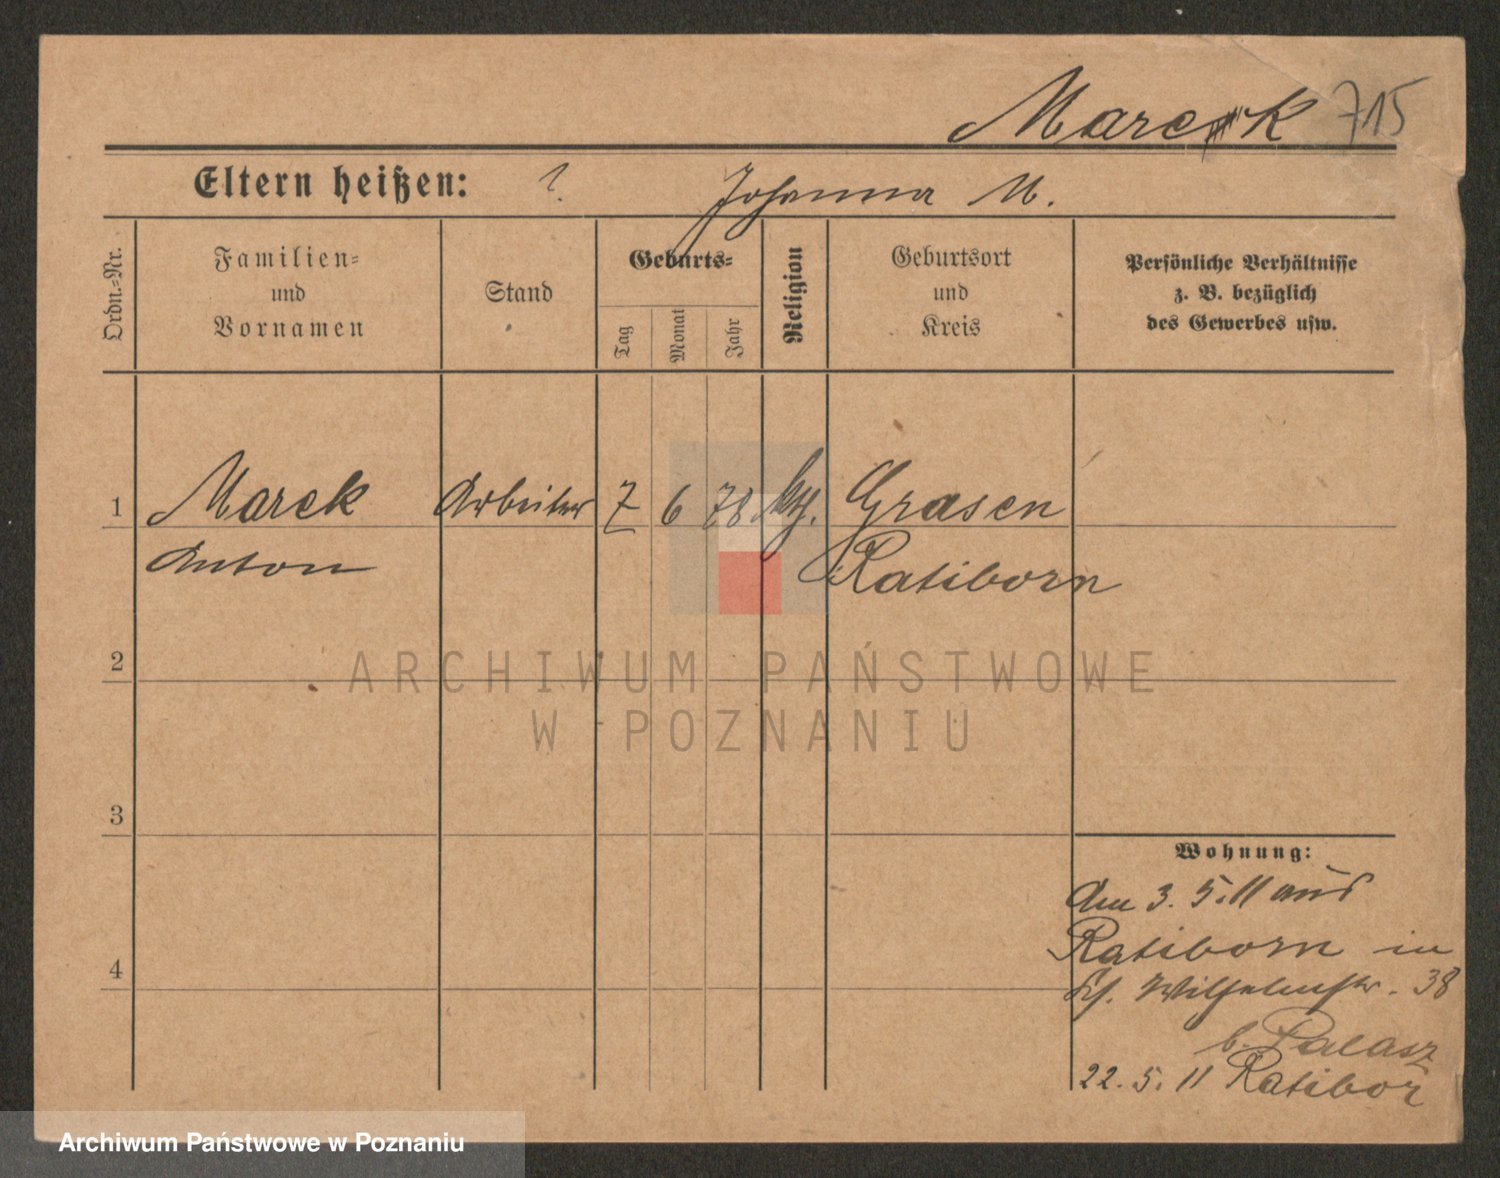 Marek 715
Eltern heißen: ? Johanna M.
Ordn.-Nr.
Familien-
und
Vornamen
Stand
Geburts-
Tag
Monat
Jahr
Religion
Geburtsort
und
Kreis
Persönliche Verhältnisse
z. B. bezüglich
des Gewerbes usw.
1 Marek Arbeiter 7 6 78 kth. Grasen
Anton Ratiborn
2
3
4
Wohnung:
Am 3. 5. 11 aus
Ratiborn in
Wilhelmstr. 38
b. Palasz
22. 5. 11 Ratibor
ARCHIWUM PAŃSTWOWE
W POZNANIU
Archiwum Państwowe w Poznaniu